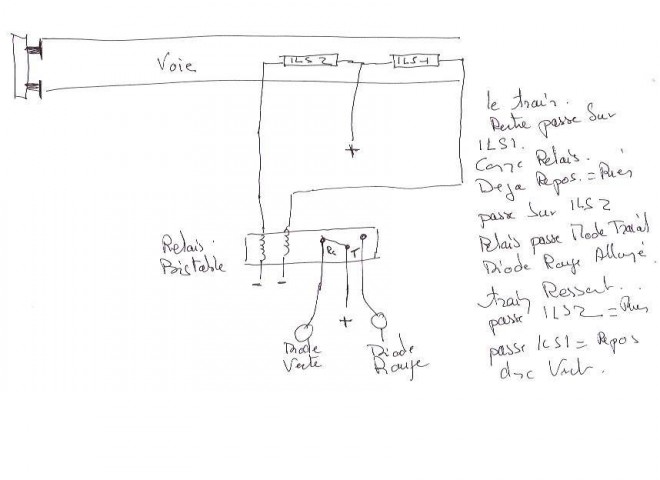 Voie
ILS2
ILS1
+
Relais.
Bistable
R
T
-
-
+
Diode
Verte
Diode
Rouge
le train.
Rentre passe Sur
ILS1.
Relais.
Deja Repos. = Rien
passe Sur ILS2
Relais passe Mode Travail
Diode Rouge Allumé.
train Ressort...
passe ILS2 = Rien
passe ILS1 = Repos
donc Vert.